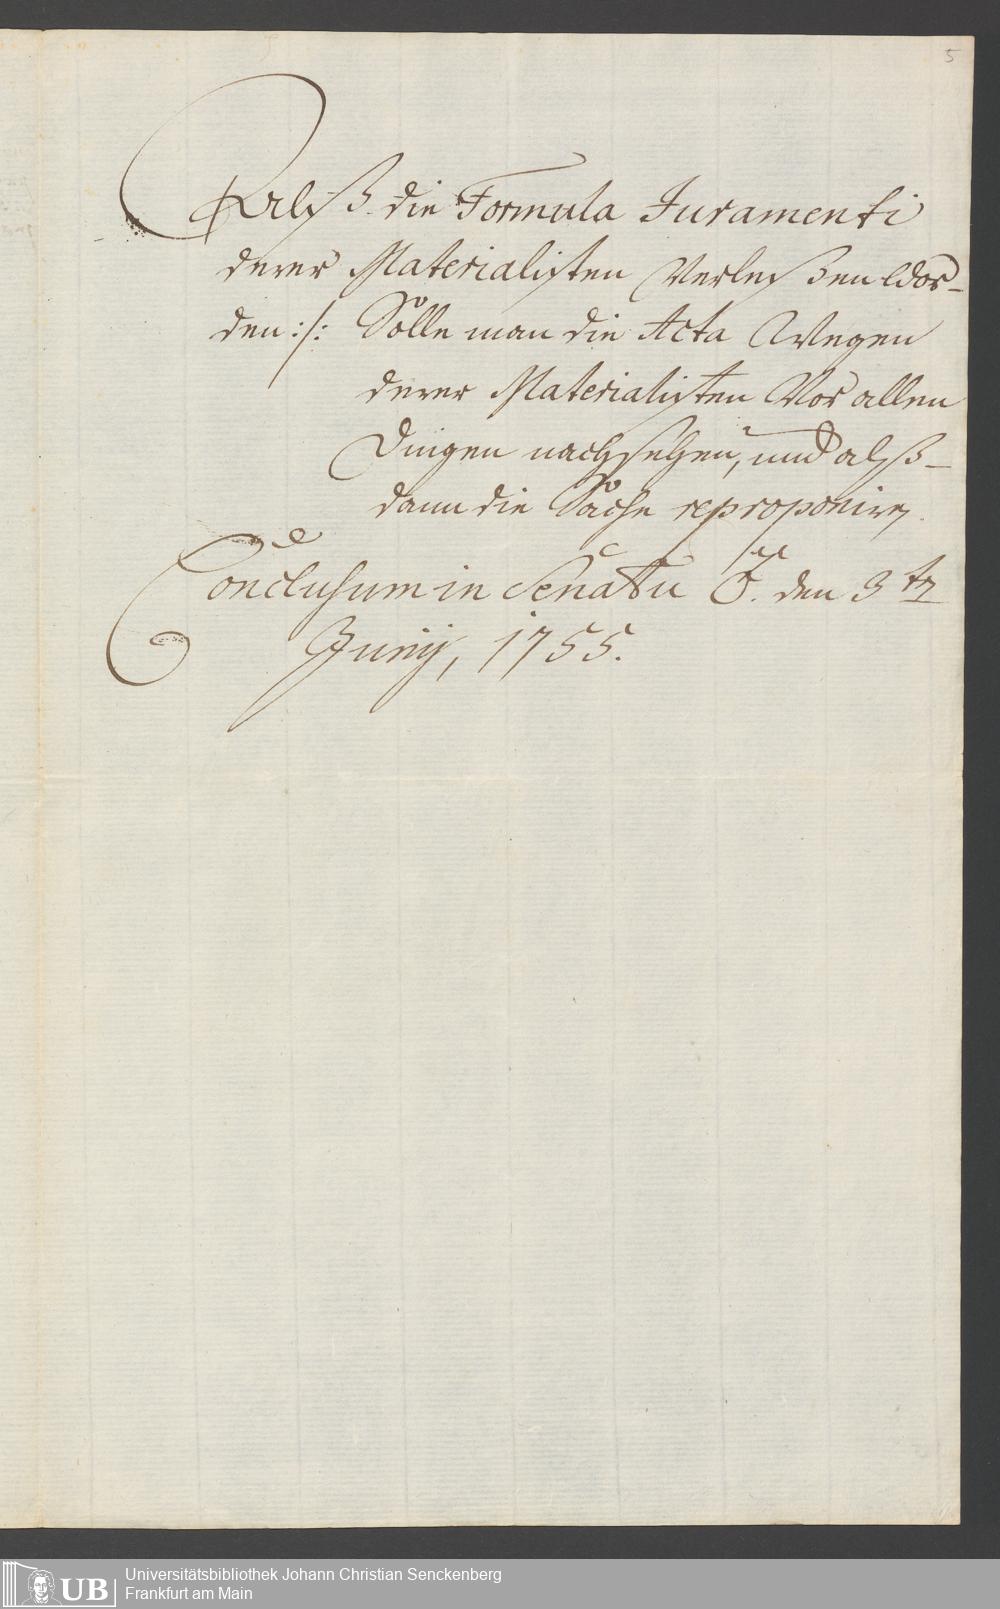 5
Alß die Formula Juramenti
derer Materialisten Verleßen wor-
den :/: Solle man die Acta Wegen
derer Materialisten Vor allen
Dingen nachsehen, und alß-
dann die Sache reproponiren
Conclusum in Senatu d. den 3ten
Junij, 1755.
UB
Universitätsbibliothek Johann Christian Senckenberg
Frankfurt am Main